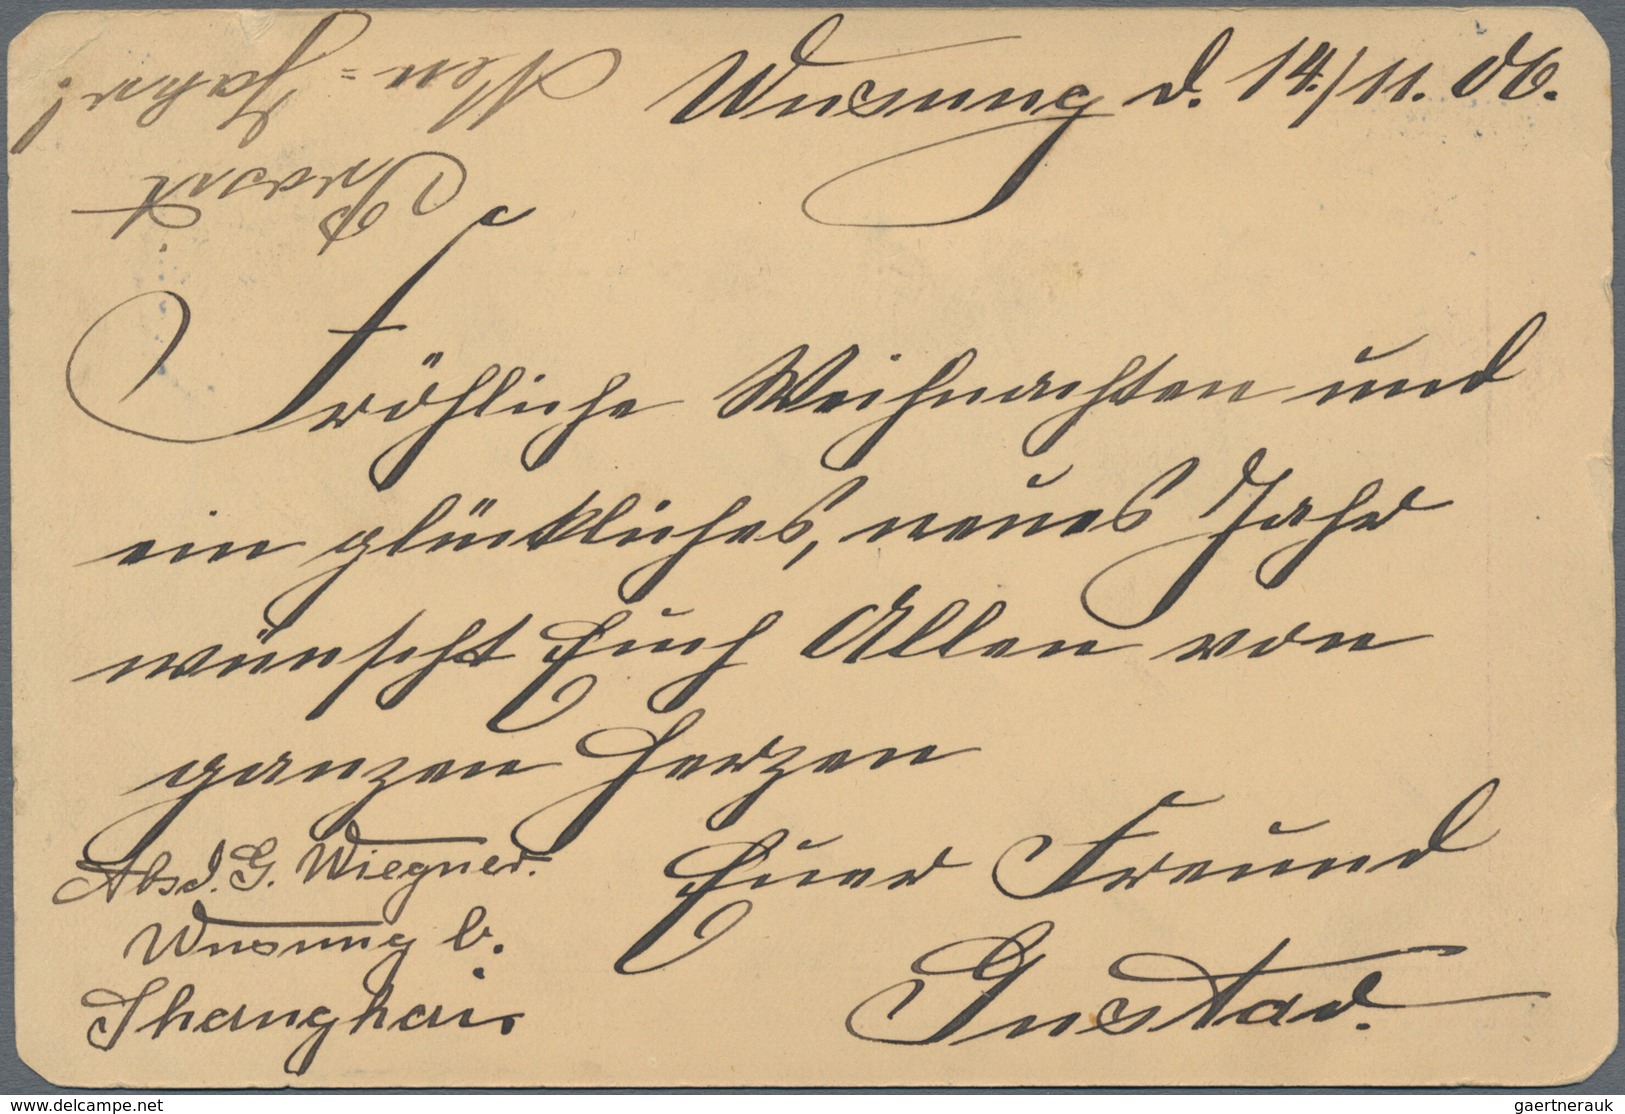 Wusung d. 14./11. 06.
Prosit
Neu=Jahr!
Fröhliche Weihnachten und
ein glückliches, neues Jahr
wünscht Euch Allen von
ganzen Herzen
Euer Freund
Gustav.
Absd. G. Wiegner.
Wusung b.
Shanghai.
www.delcampe.net
gaertnerauk